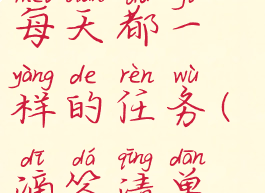 每天都一
yàng de rèn wù
样的任务(
dī dá qīng dān
滴答清单